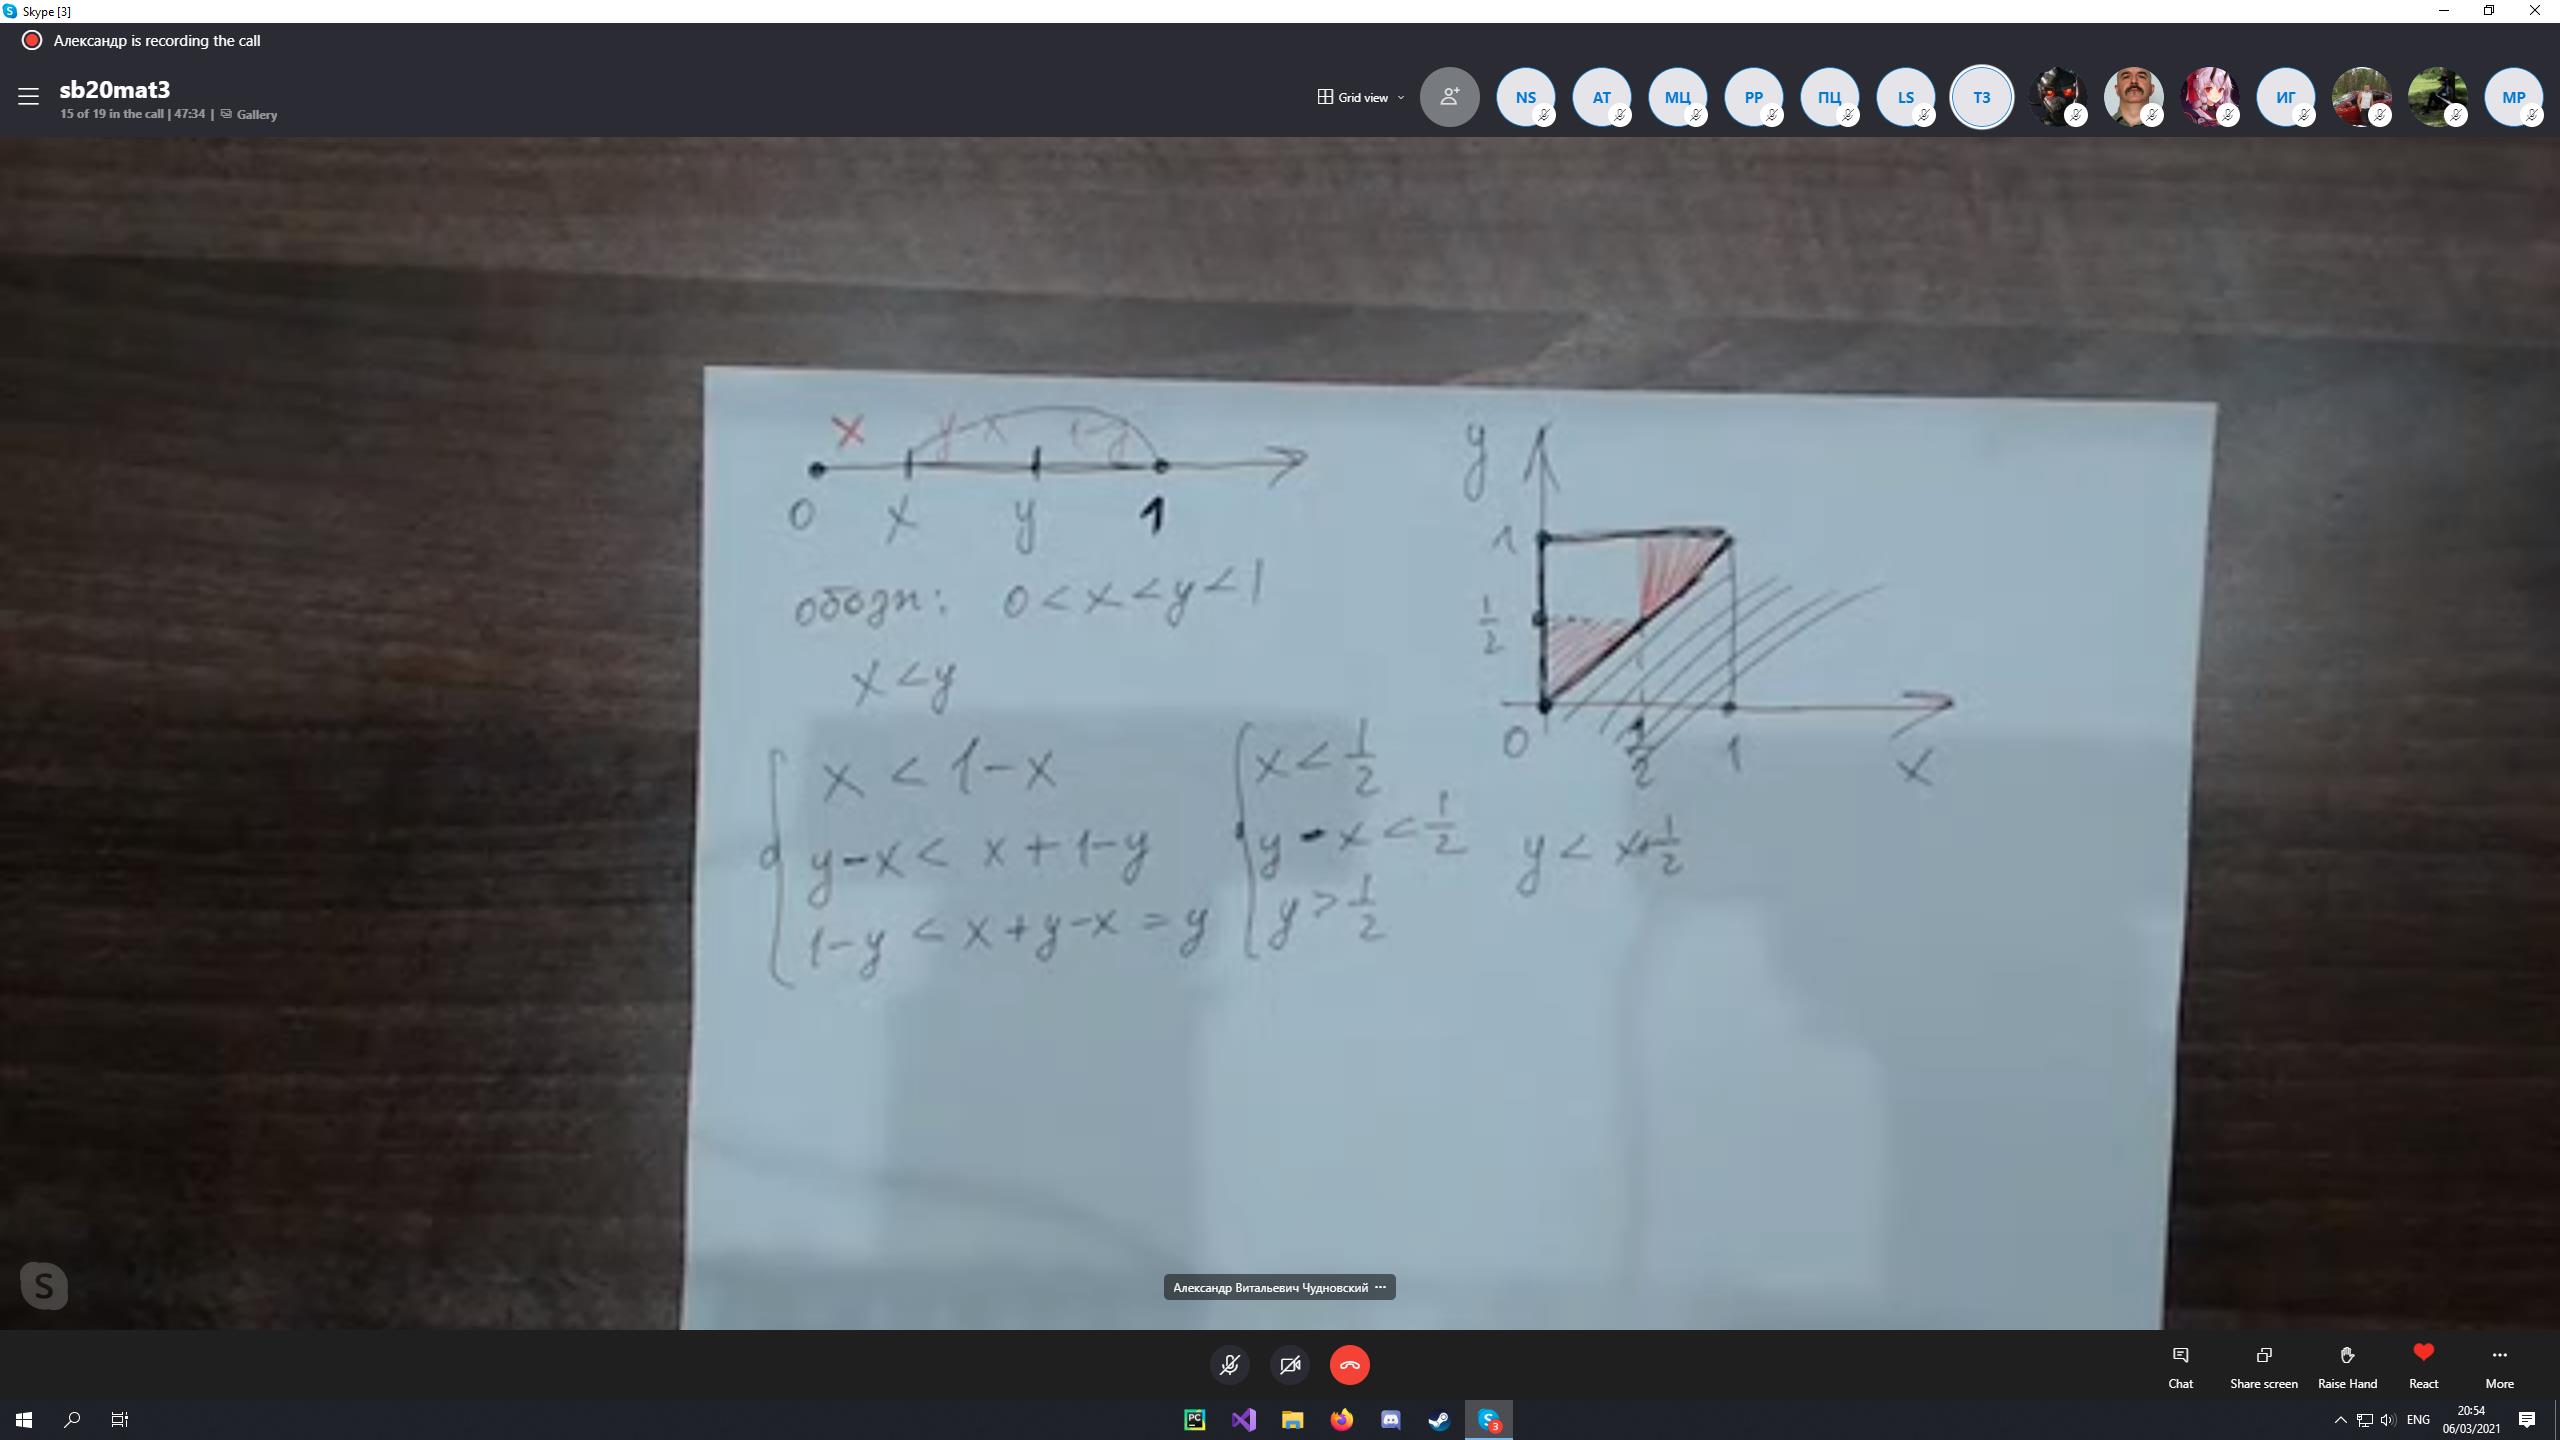 Skype [3]
Александр is recording the call
sb20mat3
15 of 19 in the call | 47:34 | Gallery
Grid view
NS AT МЦ PP ПЦ LS T3 ИГ MP
x y-x 1-y
0 x y 1
обозн: 0 < x < y < 1
x < y
x < 1-x
y-x < x+1-y
1-y < x+y-x = y
x < 1/2
y - x < 1/2 y < x+1/2
y > 1/2
y
1
1/2
0 1/2 1 x
Александр Витальевич Чудновский ···
S
Chat Share screen Raise Hand React More
PC
S 3
ENG
20:54
06/03/2021